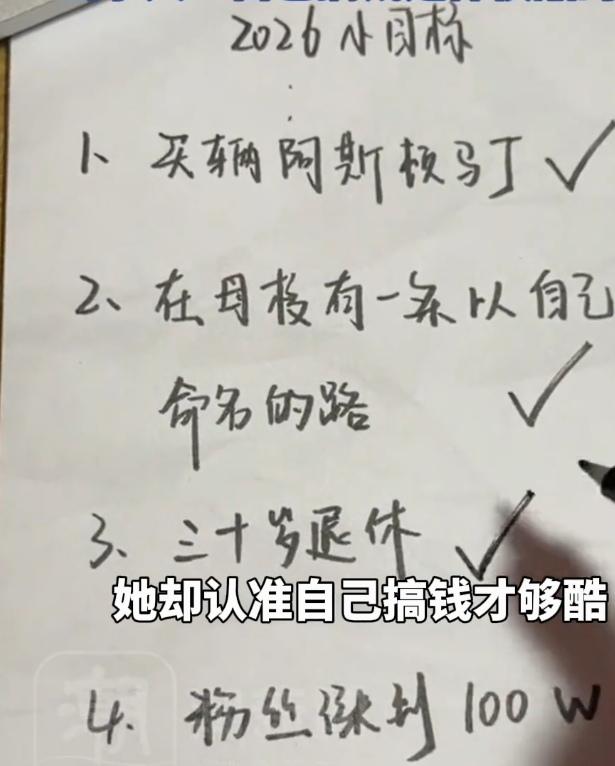 2026小目标
1、买辆阿斯顿马丁 ✓
2、在母校有一条以自己
命名的路 ✓
3、三十岁退休 ✓
她却认准自己搞钱才够酷
4、粉丝涨到100W